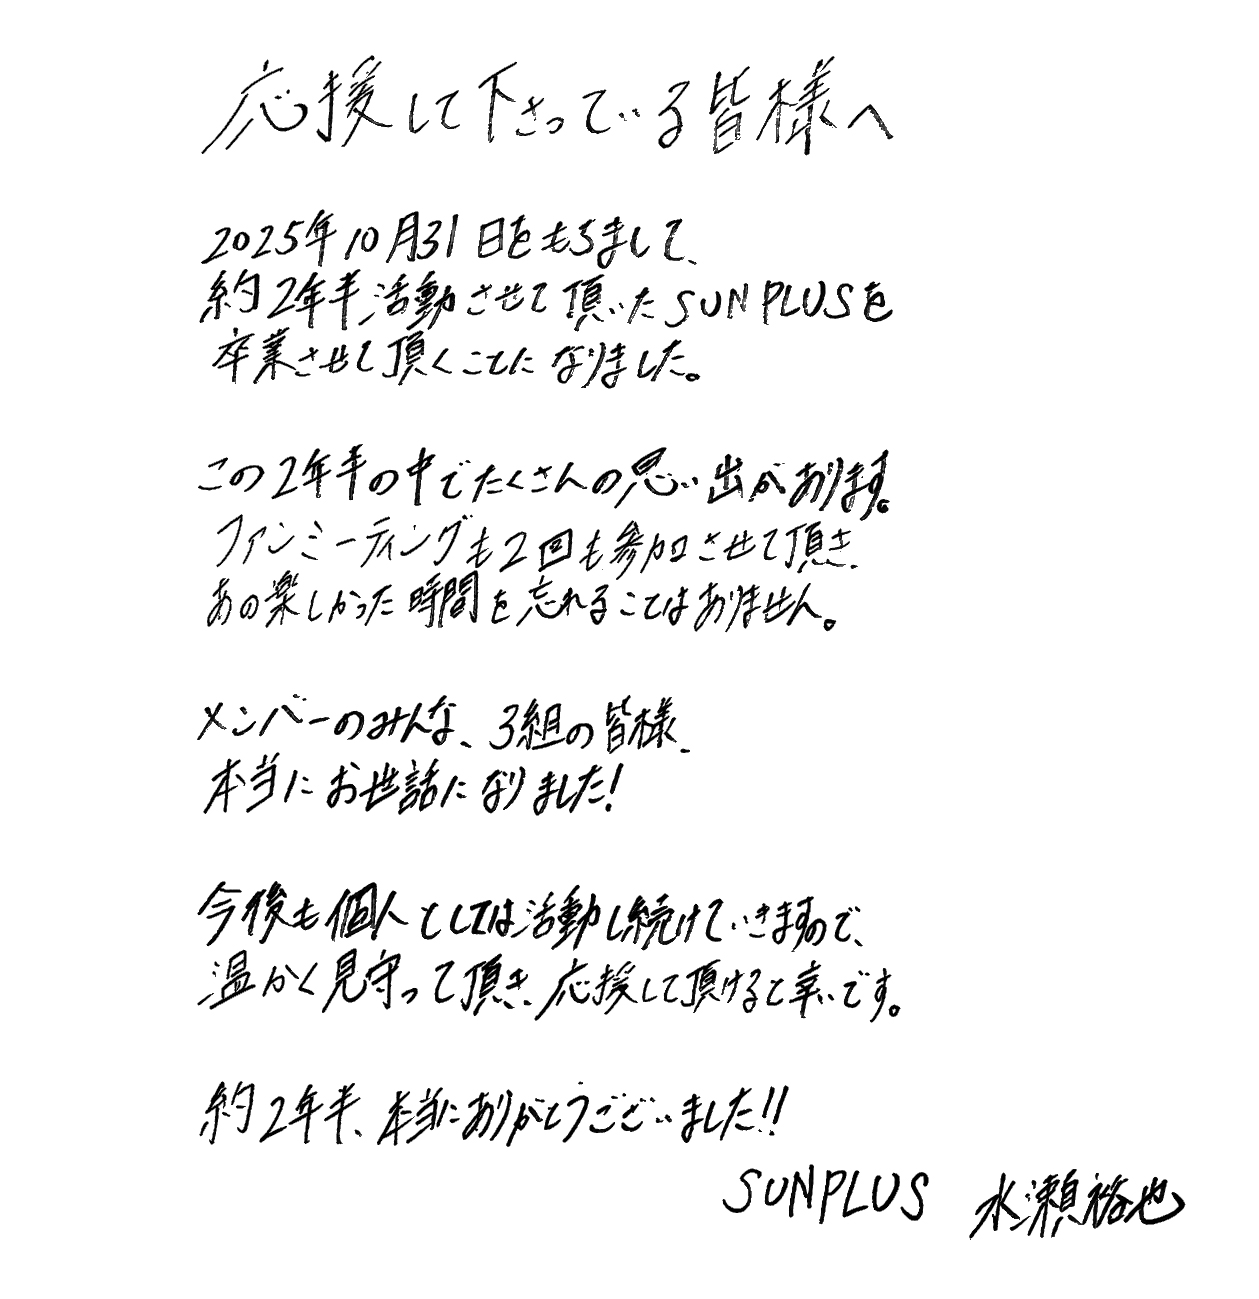 応援して下さっている皆様へ
2025年10月31日をもちまして、
約2年半活動させて頂いたSUNPLUSを
卒業させて頂くことになりました。
この2年半の中でたくさんの思い出があります。
ファンミーティングも2回も参加させて頂き、
あの楽しかった時間を忘れることはありません。
メンバーのみんな、3組の皆様、
本当にお世話になりました!
今後も個人としては活動し続けていきますので、
温かく見守って頂き、応援して頂けると幸いです。
約2年半、本当にありがとうございました!!
SUNPLUS 水瀬裕也